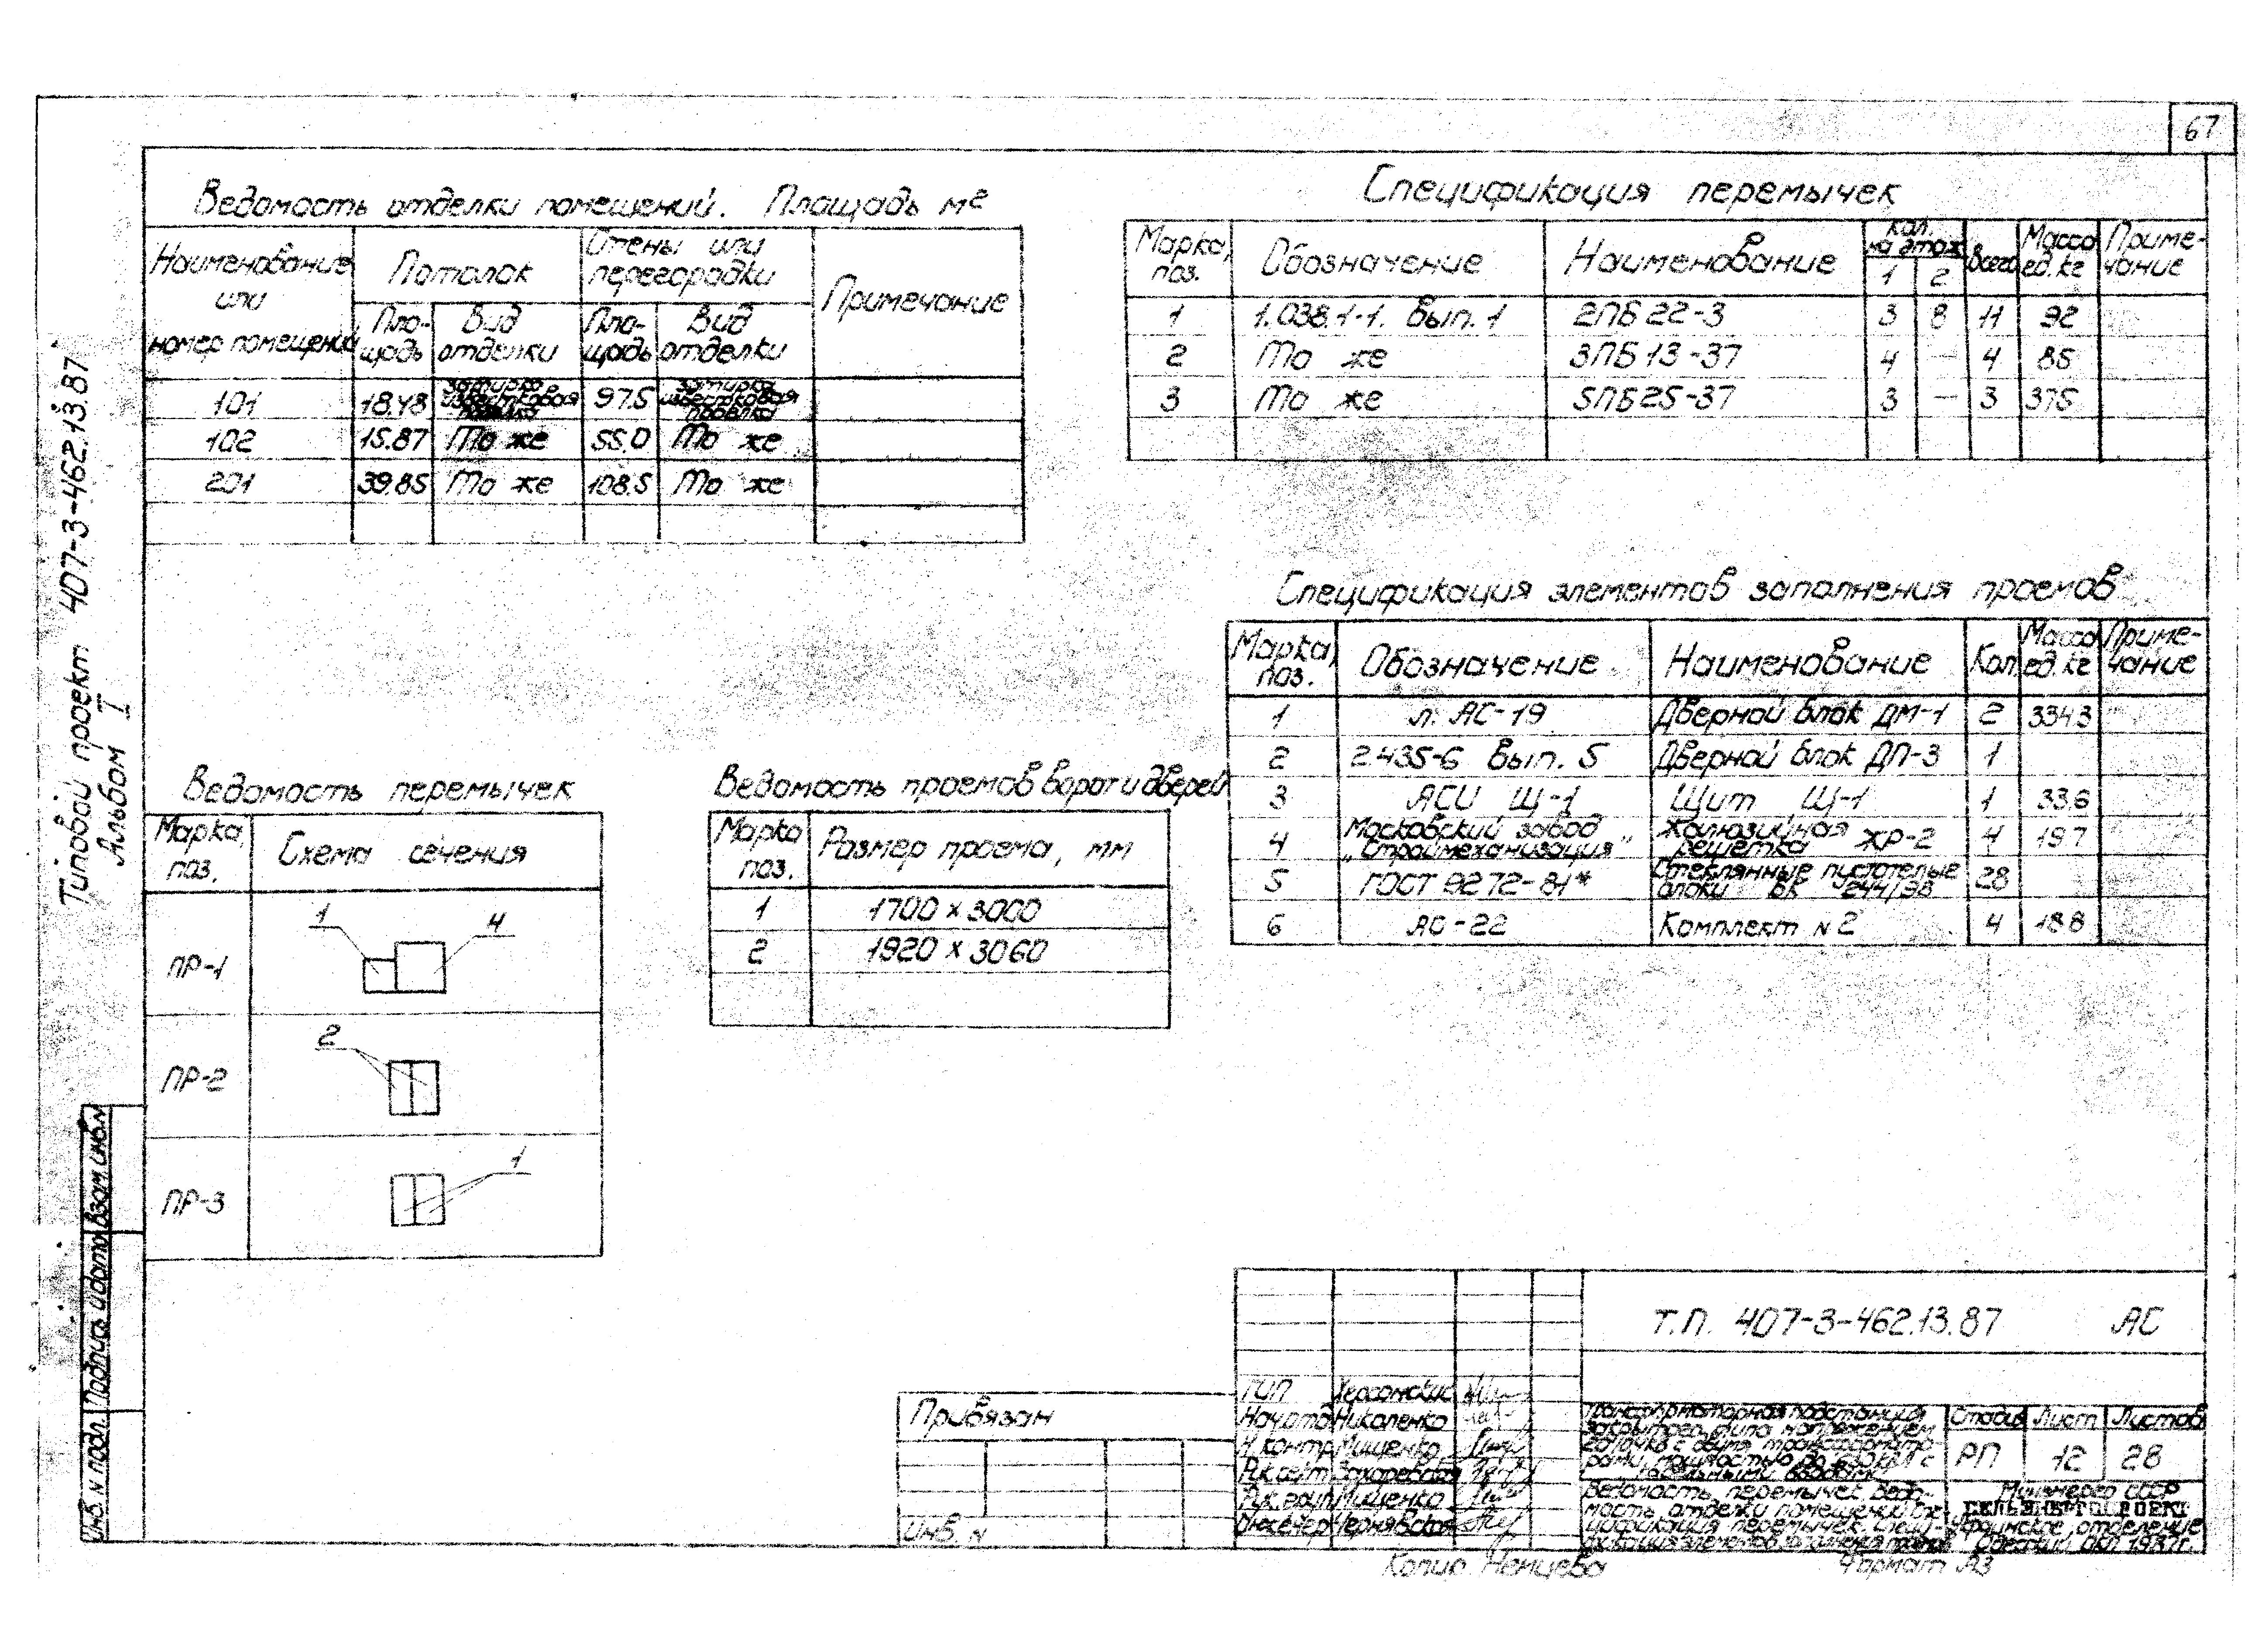 67
Типовой проект 407-3-462.13.87
Альбом I
Ведомость отделки помещений. Площадь м2
Наименование или номер помещения | Потолок | Стены или перегородки | Примечание
Пло-щадь | Вид отделки | Пло-щадь | Вид отделки
101 | 18.48 | затирка известковая побелка | 97.5 | затирка известковая побелка
102 | 15.87 | То же | 55.0 | То же
201 | 39.85 | То же | 108.5 | То же
Спецификация перемычек
Марка, поз. | Обозначение | Наименование | Кол. на этаж 1 2 | Всего | Масса ед. кг | Приме-чание
1 | 1.038.1-1. Вып. 1 | 2ПБ 22-3 | 3 | 8 | 11 | 92
2 | То же | 3ПБ 13-37 | 4 | — | 4 | 85
3 | То же | 5ПБ25-37 | 3 | — | 3 | 375
Спецификация элементов заполнения проемов
Марка, поз. | Обозначение | Наименование | Кол. | Масса ед. кг | Приме-чание
1 | л. АС-19 | Дверной блок ДМ-1 | 2 | 334.3
2 | 2.435-6 Вып. 5 | Дверной блок ДП-3 | 1
3 | АСИ Щ-1 | Щит Щ-1 | 1 | 33.6
4 | Московский завод „Строймеханизация" | Жалюзийная решетка ЖР-2 | 4 | 19.7
5 | ГОСТ 9272-81* | Стеклянные пустотелые блоки БК 244/98 | 28
6 | АС-22 | Комплект N 2 | 4 | 18.8
Ведомость перемычек
Марка, поз. | Схема сечения
ПР-1 | 1 4
ПР-2 | 2
ПР-3 | 1
Ведомость проемов ворот и дверей
Марка поз. | Размер проема, мм
1 | 1700 x 3000
2 | 1920 x 3060
Инв. N подл. | Подпись и дата | Взам. инв. N
Привязан
Инв. N
Т.П. 407-3-462.13.87 АС
ГИП Херсонский
Нач.отд Николенко
Н.контр Мищенко
Рук.сект Захаревская
Рук.груп Мищенко
Инженер Чернявская
Трансформаторная подстанция
закрытого типа напряжением
с двумя трансформато-
рами мощностью до 630 кВА с
Стадия | Лист | Листов
РП | 12 | 28
Ведомость перемычек. Ведо-
мость отделки помещений. Спе-
цификация перемычек. Специ-
фикация элементов заполнения проемов
Минэнерго СССР
СЕЛЬЭНЕРГОПРОЕКТ
Украинское отделение
Одесский ОКП 1987г.
Копир. Немцева
Формат А3